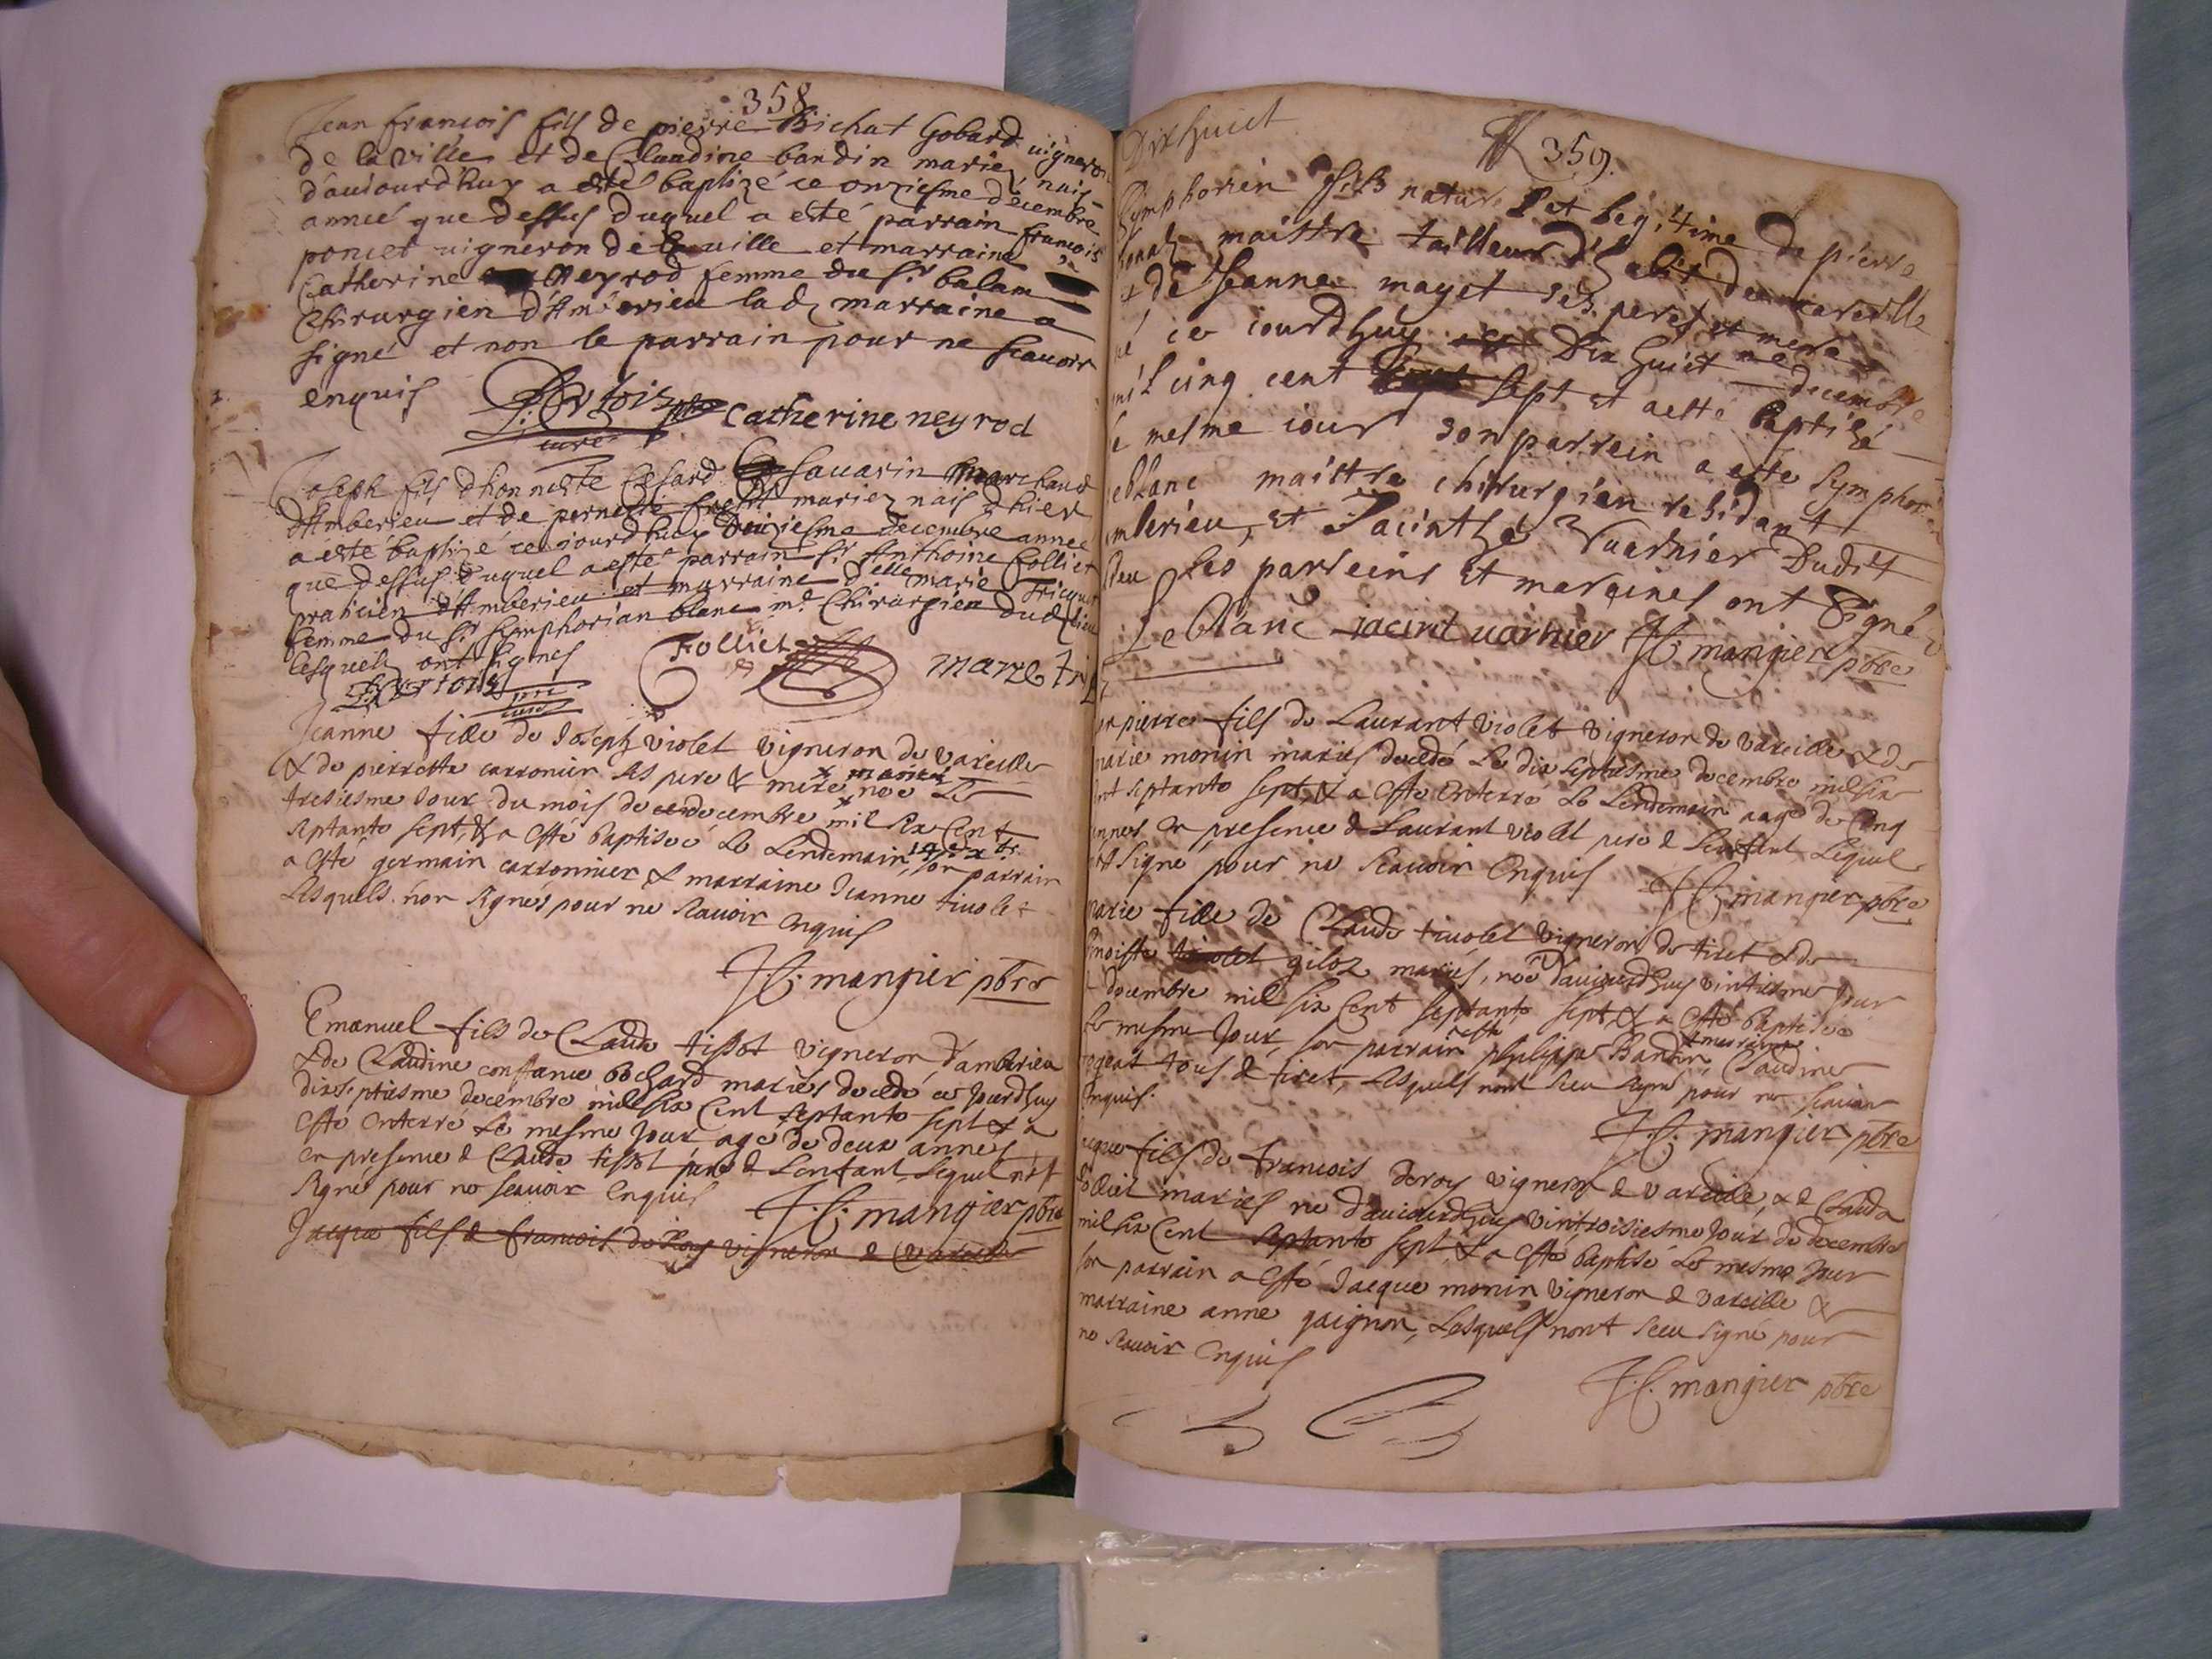 358
Jean francois fils de pierre Bichat Gobard vigneron
de la ville et de Claudine bardin mariez, nais
d'auiourdhuy a esté baptizé ce onziesme decembre
année que dessus duquel a esté parrain francois
poncet vigneron de la ville et marraine
Catherine Neyrod femme du Sr balam
Chirurgien d'Amberieu lad marraine a
signé et non le parrain pour ne scauoir
enquis
curé Catherine neyrod
Joseph fils d'honneste Cesard Sauarin marchand
d'Amberieu et de pernette mariez nais d'hier
a esté baptizé ce iourdhuy decembre année
que dessus duquel a esté parrain Sr Anthoine Folliet
praticien d'Amberieu et marraine delle marie Tricquet
femme du Sr Simphorian blanc me Chirurgien dud lieu
lesquels ont signes
Folliet marie tri
curé
Jeanne fille de Joseph violet vigneron de vareille
& de pierrette carronier ses pere & mere mariés née le
tresiesme Jour du mois de decembre mil six Cent
septante sept, & a esté baptisée le Lendemain, son parrain
a esté germain carronnier & marraine Jeanne tiuolet
Lesquels non signés pour ne scauoir enquis
J C mangier pbre
Emanuel fils de Claude tissot vigneron d'amberieu
& de Claudine constance bochard mariés decedé ce Jourdhuy
dixseptiesme decembre mil six Cent septante sept & a
esté enterré Le mesme Jour agé de deux annes
en presence de Claude tissot pere de Lenfant Lequel n'est
signé pour ne scauoir enquis J C mangier pbre
Jacque fils de francois de Roy vigneron de Vareille
Dixhuict
359.
Symphorien fils naturel et legitime de pierre
maistre tailleur d'habit de vareille
et de Jeanne mayet ses peres et mere
né ce iourdhuy Dix huict me decembre
mil cinq cent sept et aesté baptisé
le mesme iour son parrein a este symphorien
leblanc maistre chirurgien residant
amberieu, et Jacinthe Vuarnier Dudit
lieu les parreins et mareines ont signé
Le blanc jacint uarnier J C mangier pbre
pierre fils de Laurant violet vigneron de vareille & de
marie monin mariés decedé Le dix septiesme decembre mil six
cent septante sept, & a esté enterré Le Lendemain aagé de Cinq
annes en presence de Laurant violet pere de Lenfant Lequel
n'est signé pour ne scauoir enquis J C mangier pbre
marie fille de Claude tiuolet vigneron de tiret & de
benoiste giloz mariés, née d'auiourdhuy vintiesme Jour
de decembre mil six Cent septante sept, & a esté baptisée
le mesme Jour, son parrain a esté philippe Bardin, & marraine Claudine
tous de tiret, Lesquels nont sceu signé pour ne scauoir
enquis.
J C mangier pbre
Jacque fils de francois deroy vigneron de vareille, & de Clauda
folliet mariés né d'auiourdhuy vintroisiesme Jour de decembre
mil six Cent septante sept & a esté baptisé Le mesme Jour
son parrain a esté Jacque monin vigneron de vareille &
marraine anne gaignon, Lesquels nont sceu signé pour
ne scauoir enquis
J C mangier pbre